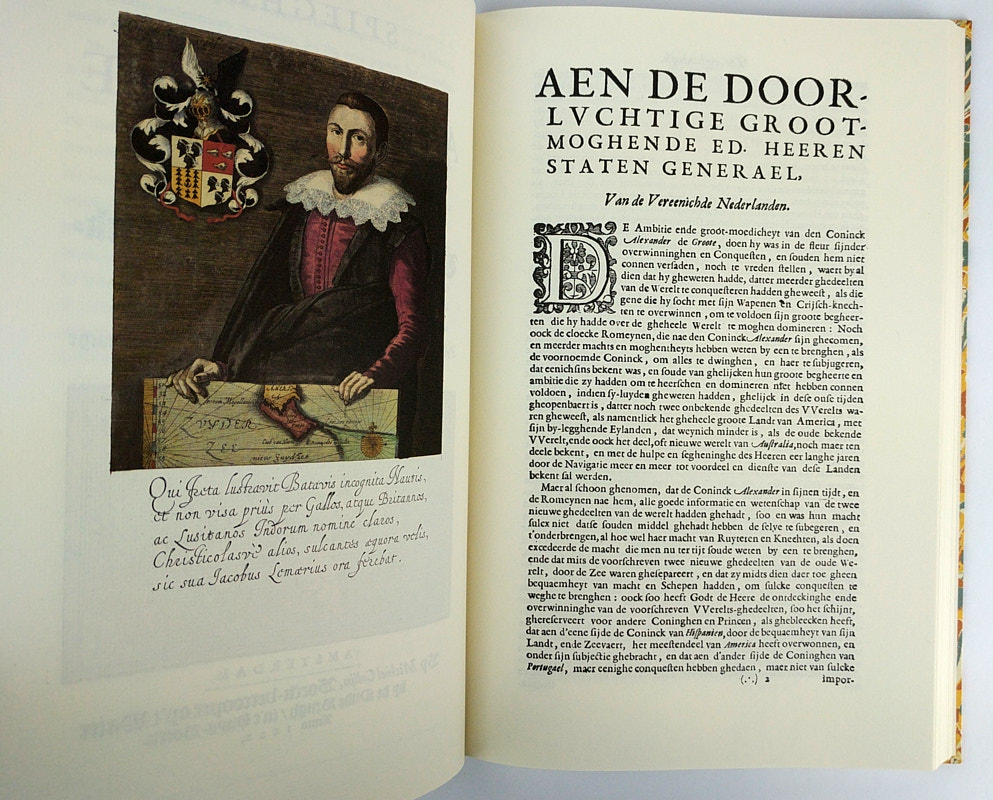 ZVYDER
ZEE
Qui freta lustravit Batavis incognita Nautis,
et non visa prius per Gallos, atque Britannos,
ac Lusitanos Indorum nomine claros,
Christicolasvè alios, sulcantes æquora velis,
sic sua Jacobus Lemærius ora ferebat.
AEN DE DOOR-
LVCHTIGE GROOT-
MOGHENDE ED. HEEREN
STATEN GENERAEL,
Van de Vereenichde Nederlanden.
DE Ambitie ende groot-moedicheyt van den Coninck
Alexander de Groote, doen hy was in de fleur sijnder
overwinninghen en Conquesten, en souden hem niet
connen versaden, noch te vreden stellen, waert by al
dien dat hy gheweten hadde, datter meerder ghedeelten
van de Werelt te conquesteren hadden gheweest, als die
gene die hy socht met sijn Wapenen en Crijsch-knech-
ten te overwinnen, om te voldoen sijn groote begheer-
ten die hy hadde over de gheheele Werelt te moghen domineren: Noch
oock de cloecke Romeynen, die nae den Coninck Alexander sijn ghecomen,
en meerder machts en moghentheyts hebben weten by een te brenghen, als
de voornoemde Coninck, om alles te dwinghen, en haer te subjugeren,
dat eenichsins bekent was, en soude van ghelijcken hun groote begheerte en
ambitie die zy hadden om te heerschen en domineren niet hebben connen
voldoen, indien sy-luyden gheweten hadden, ghelijck in dese onse tijden
gheopenbaert is, datter noch twee onbekende ghedeelten des VVerelts wa-
ren gheweest, als namentlick het gheheele groote Landt van America, met
sijn by-legghende Eylanden, dat weynich minder is, als de oude bekende
VVerelt, ende oock het deel, oft nieuwe werelt van Australia, noch maer ten
deele bekent, en met de hulpe en segheninghe des Heeren eer langhe jaren
door de Navigatie meer en meer tot voordeel en dienste van dese Landen
bekent sal werden.
Maer al schoon ghenomen, dat de Coninck Alexander in sijnen tijdt, en
de Romeynen nae hem, alle goede informatie en wetenschap van de twee
nieuwe ghedeelten van de werelt hadden ghehadt, soo en was hun macht
sulcx niet datse souden middel ghehadt hebben de selve te subegeren, en
t'onderbrengen, al hoe wel haer macht van Ruyteren en Knechten, als doen
excedeerde de macht die men nu ter tijt soude weten by een te brenghen,
ende dat mits de voorschreven twee nieuwe ghedeelten van de oude We-
relt, door de Zee waren ghesepareert, en dat zy midts dien daer toe gheen
bequaemheyt van macht en Schepen hadden, om sulcke conquesten te
weghe te brenghen: oock soo heeft Godt de Heere de ontdeckinghe ende
overwinninghe van de voorschreven VVerelts-ghedeelten, soo het schijnt,
ghereserveert voor andere Coninghen en Princen, als ghebleecken heeft,
dat aen d'eene sijde de Coninck van Hispanien, door de bequaemheyt van sijn
Landt, en de Zeevaert, het meestendeel van America heeft overwonnen, en
onder sijn subjectie ghebracht, en dat aen d'ander sijde de Coninghen van
Portugael, maer eenighe conquesten hebben ghedaen, maer niet van sulcke
(.·.) 2 impor-